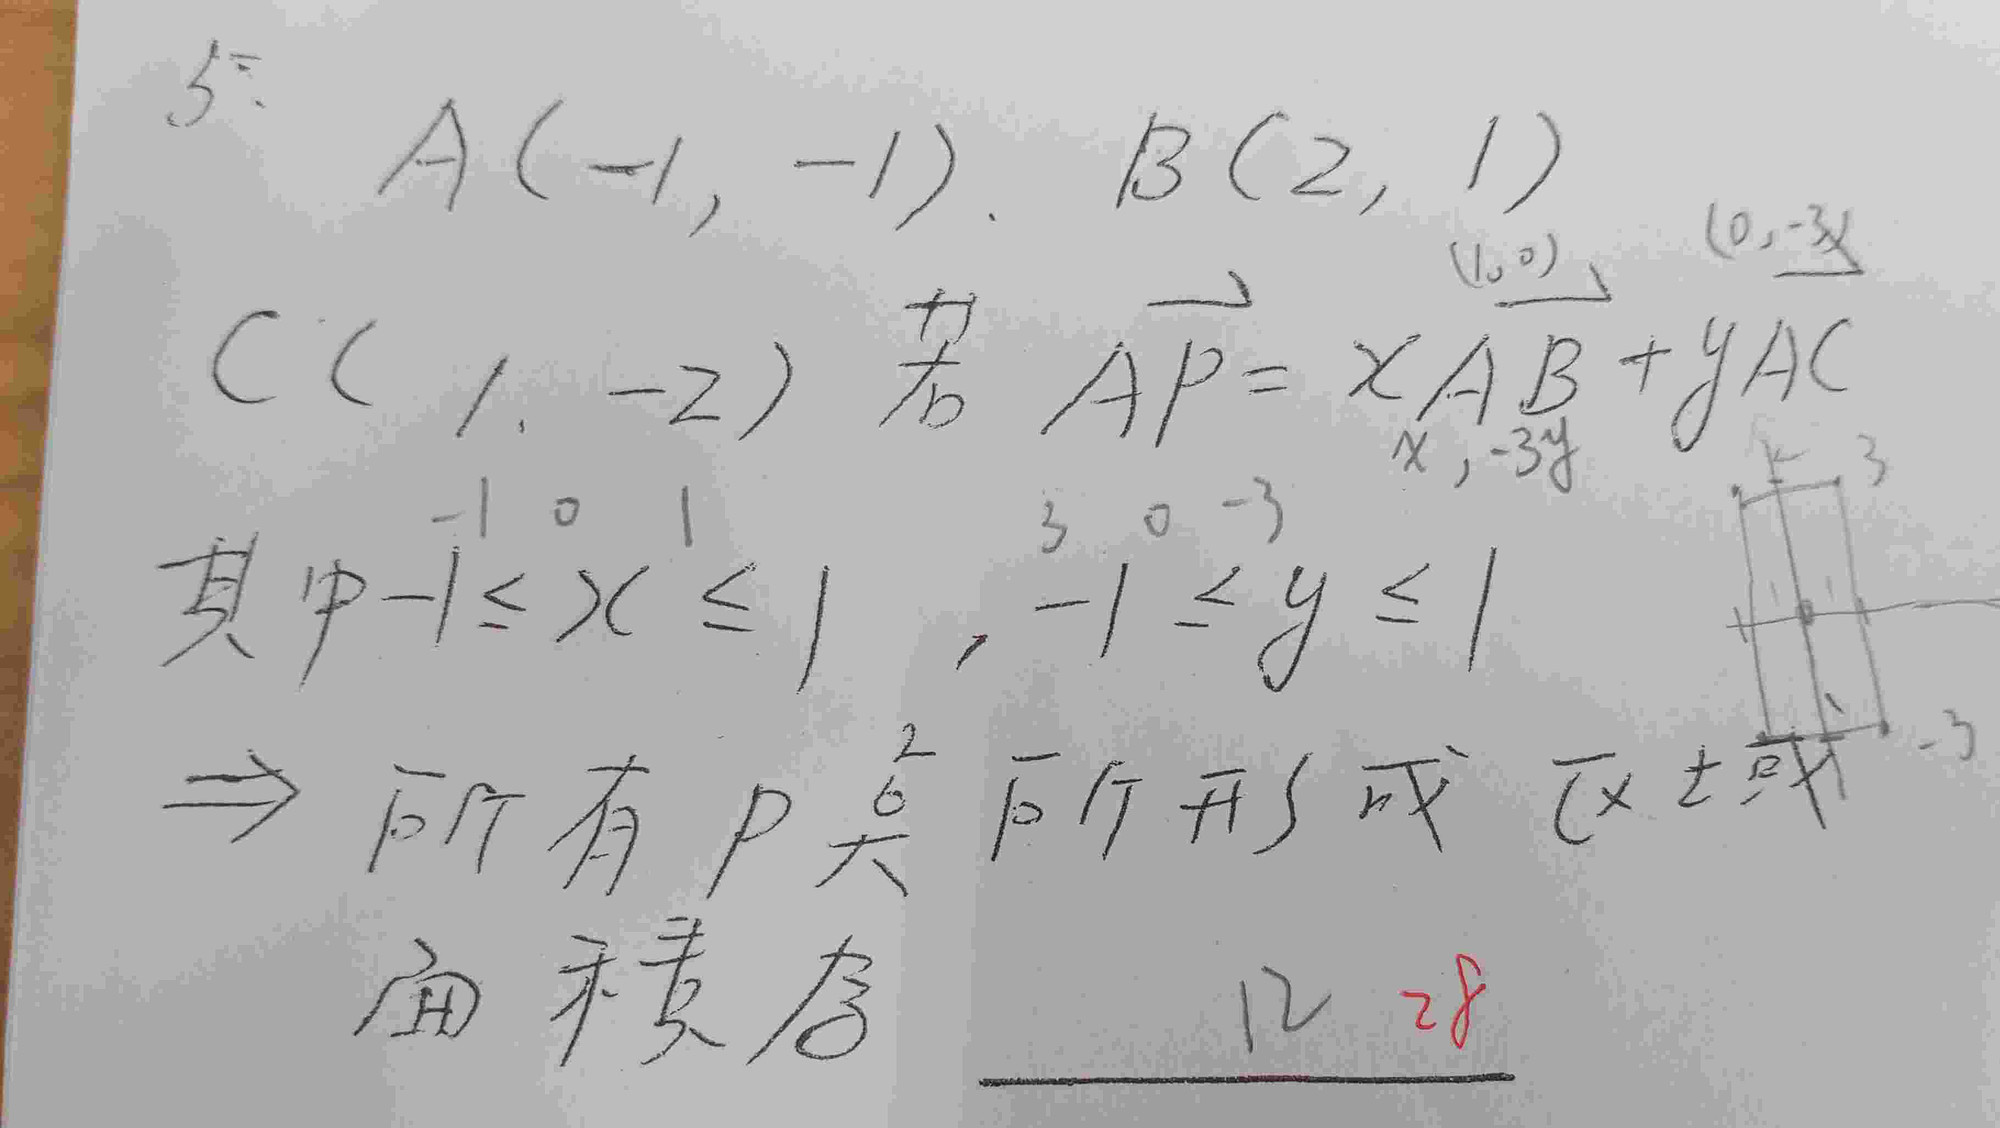 5.
A(-1, -1). B(2, 1)
(1, 0) (0, -3y
C(1, -2) 若 AP = xAB + yAC
x, -3y
-1 0 1 3 0 -3
其中 -1 ≤ x ≤ 1, -1 ≤ y ≤ 1
3
-3
⇒ 所有P點所形成區域
面積為 12 28